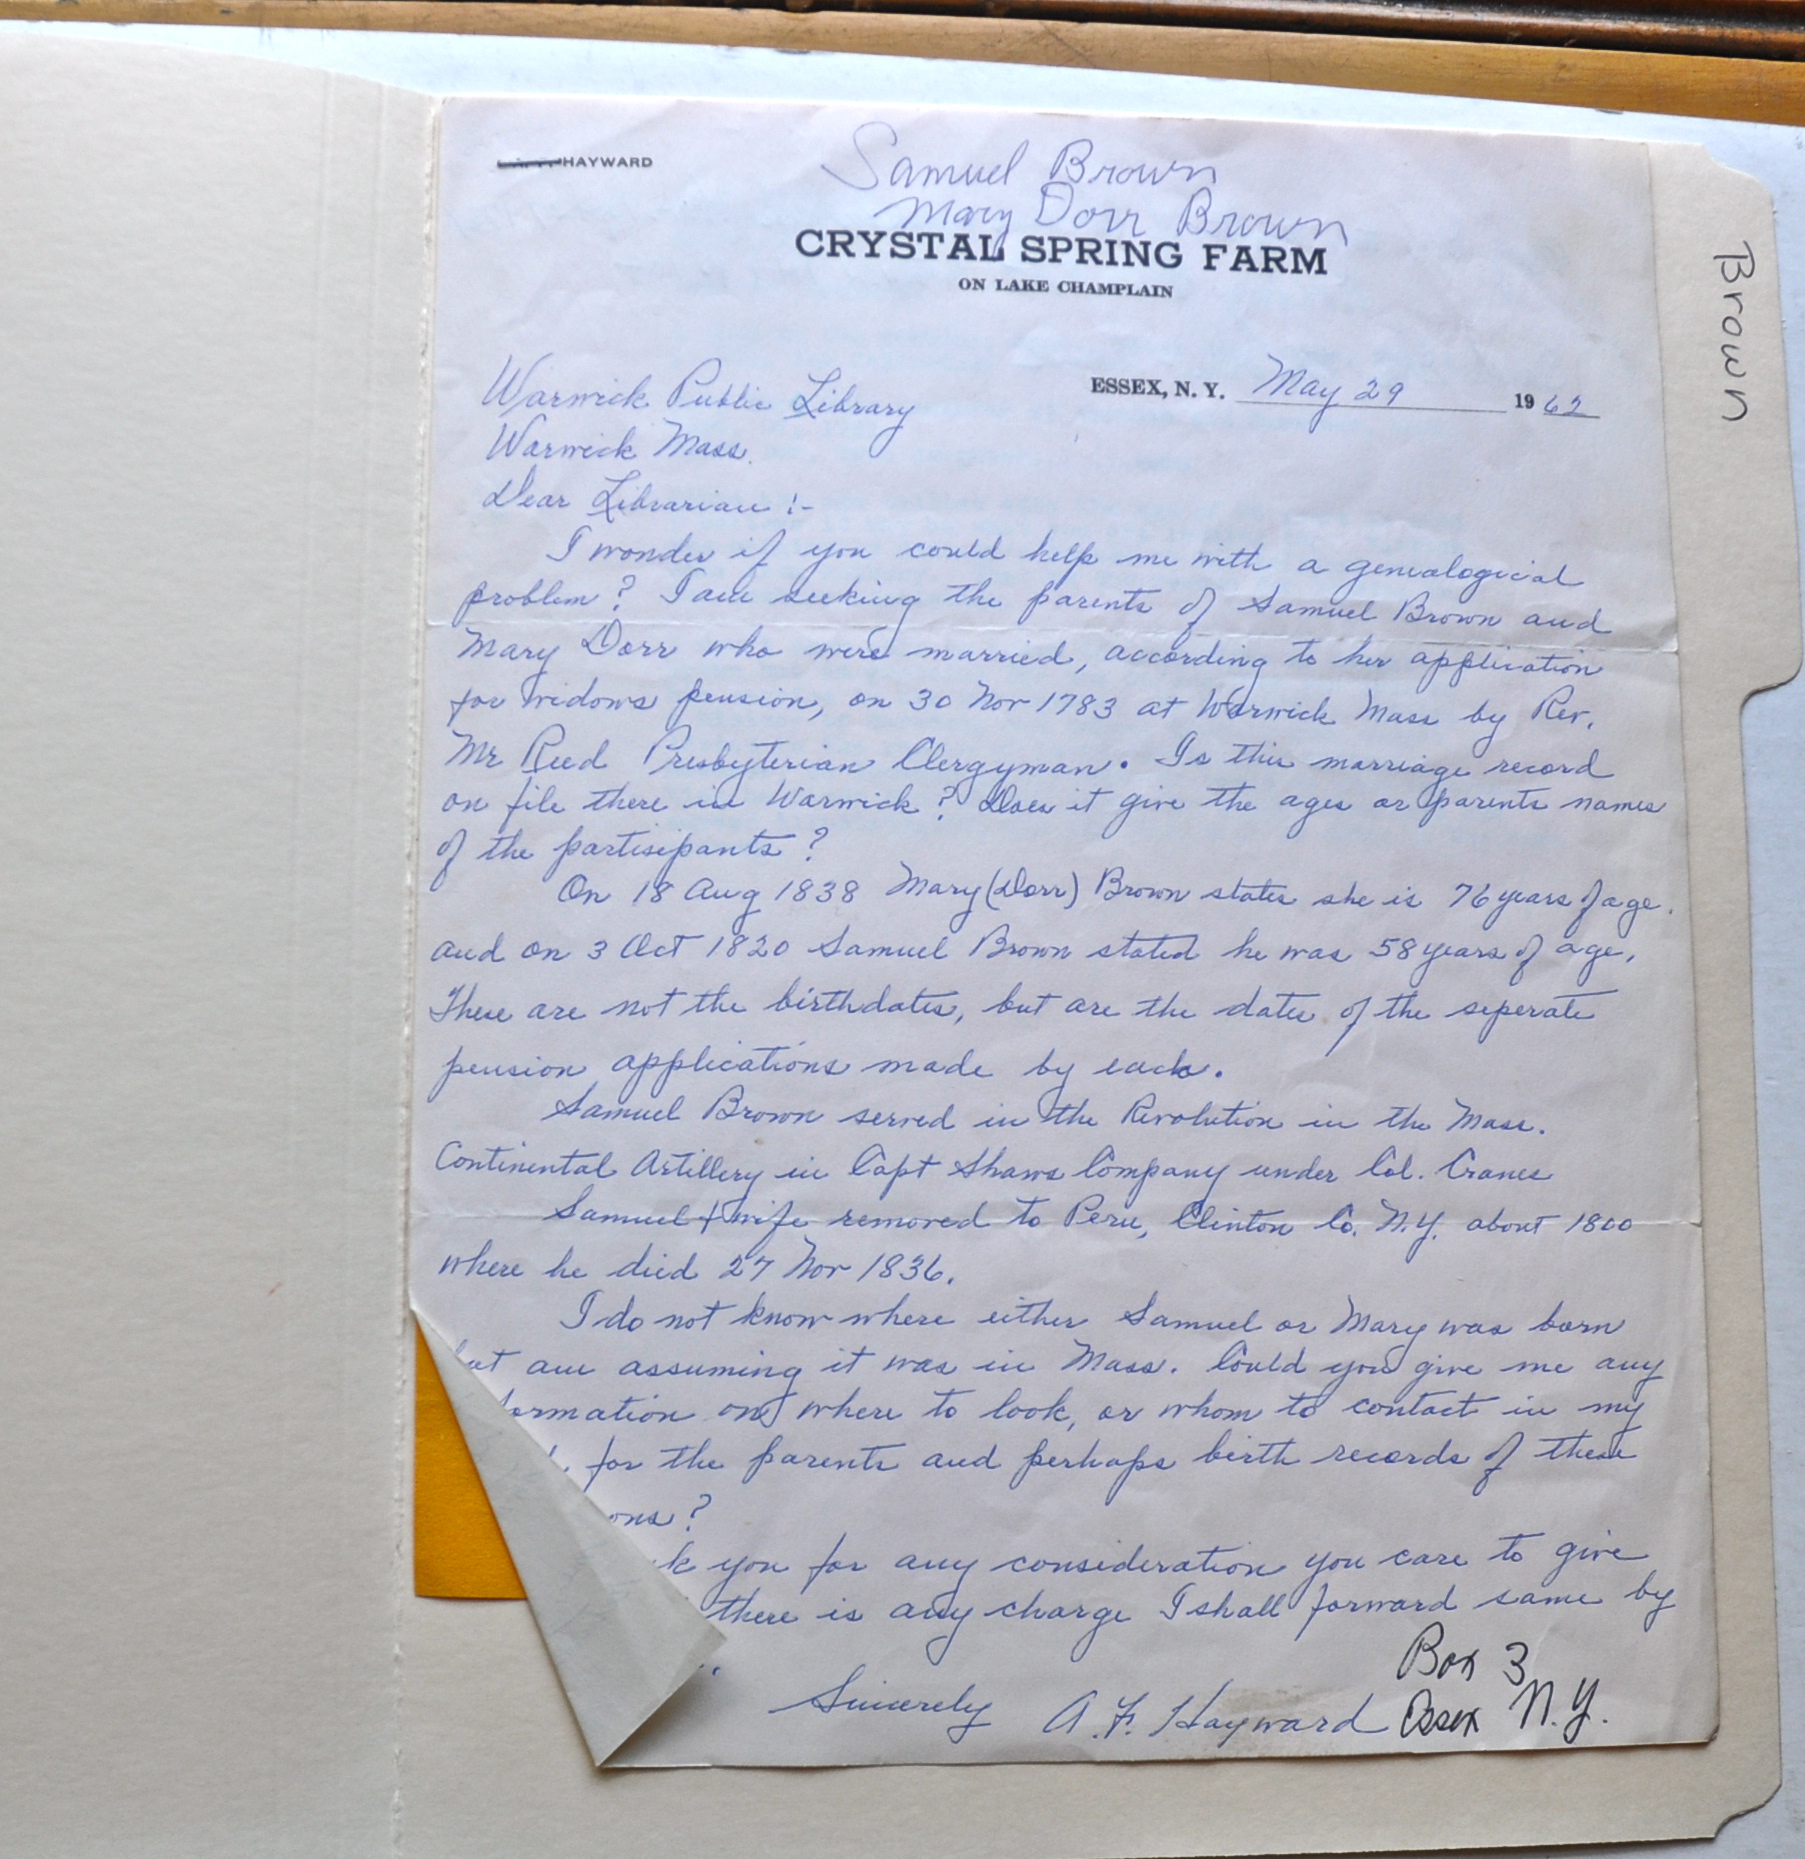 HAYWARD
Samuel Brown
Mary Dorr Brown
CRYSTAL SPRING FARM
ON LAKE CHAMPLAIN
Brown
ESSEX, N. Y. May 29 1962
Warwick Public Library
Warwick Mass.
Dear Librarian :-
I wonder if you could help me with a genealogical
problem? I am seeking the parents of Samuel Brown and
Mary Dorr who were married, according to her application
for widows pension, on 30 Nov 1783 at Warwick Mass by Rev.
Mr Reed Presbyterian Clergyman. Is this marriage record
on file there in Warwick? Does it give the ages or parents names
of the partisipants?
On 18 Aug 1838 Mary (Dorr) Brown states she is 76 years of age.
and on 3 Oct 1820 Samuel Brown stated he was 58 years of age.
These are not the birthdates, but are the dates of the seperate
pension applications made by each.
Samuel Brown served in the Revolution in the Mass.
Continental Artillery in Capt Shaws Company under Col. Cranes
Samuel & wife removed to Peru, Clinton Co. N.Y. about 1800
where he died 27 Nov 1836.
I do not know where either Samuel or Mary was born
but am assuming it was in Mass. Could you give me any
ormation on where to look, or whom to contact in my
for the parents and perhaps birth records of these
ons?
k you for any consideration you care to give
there is any charge I shall forward same by
Sincerely A. F. Hayward
Box 3
Essex N.Y.